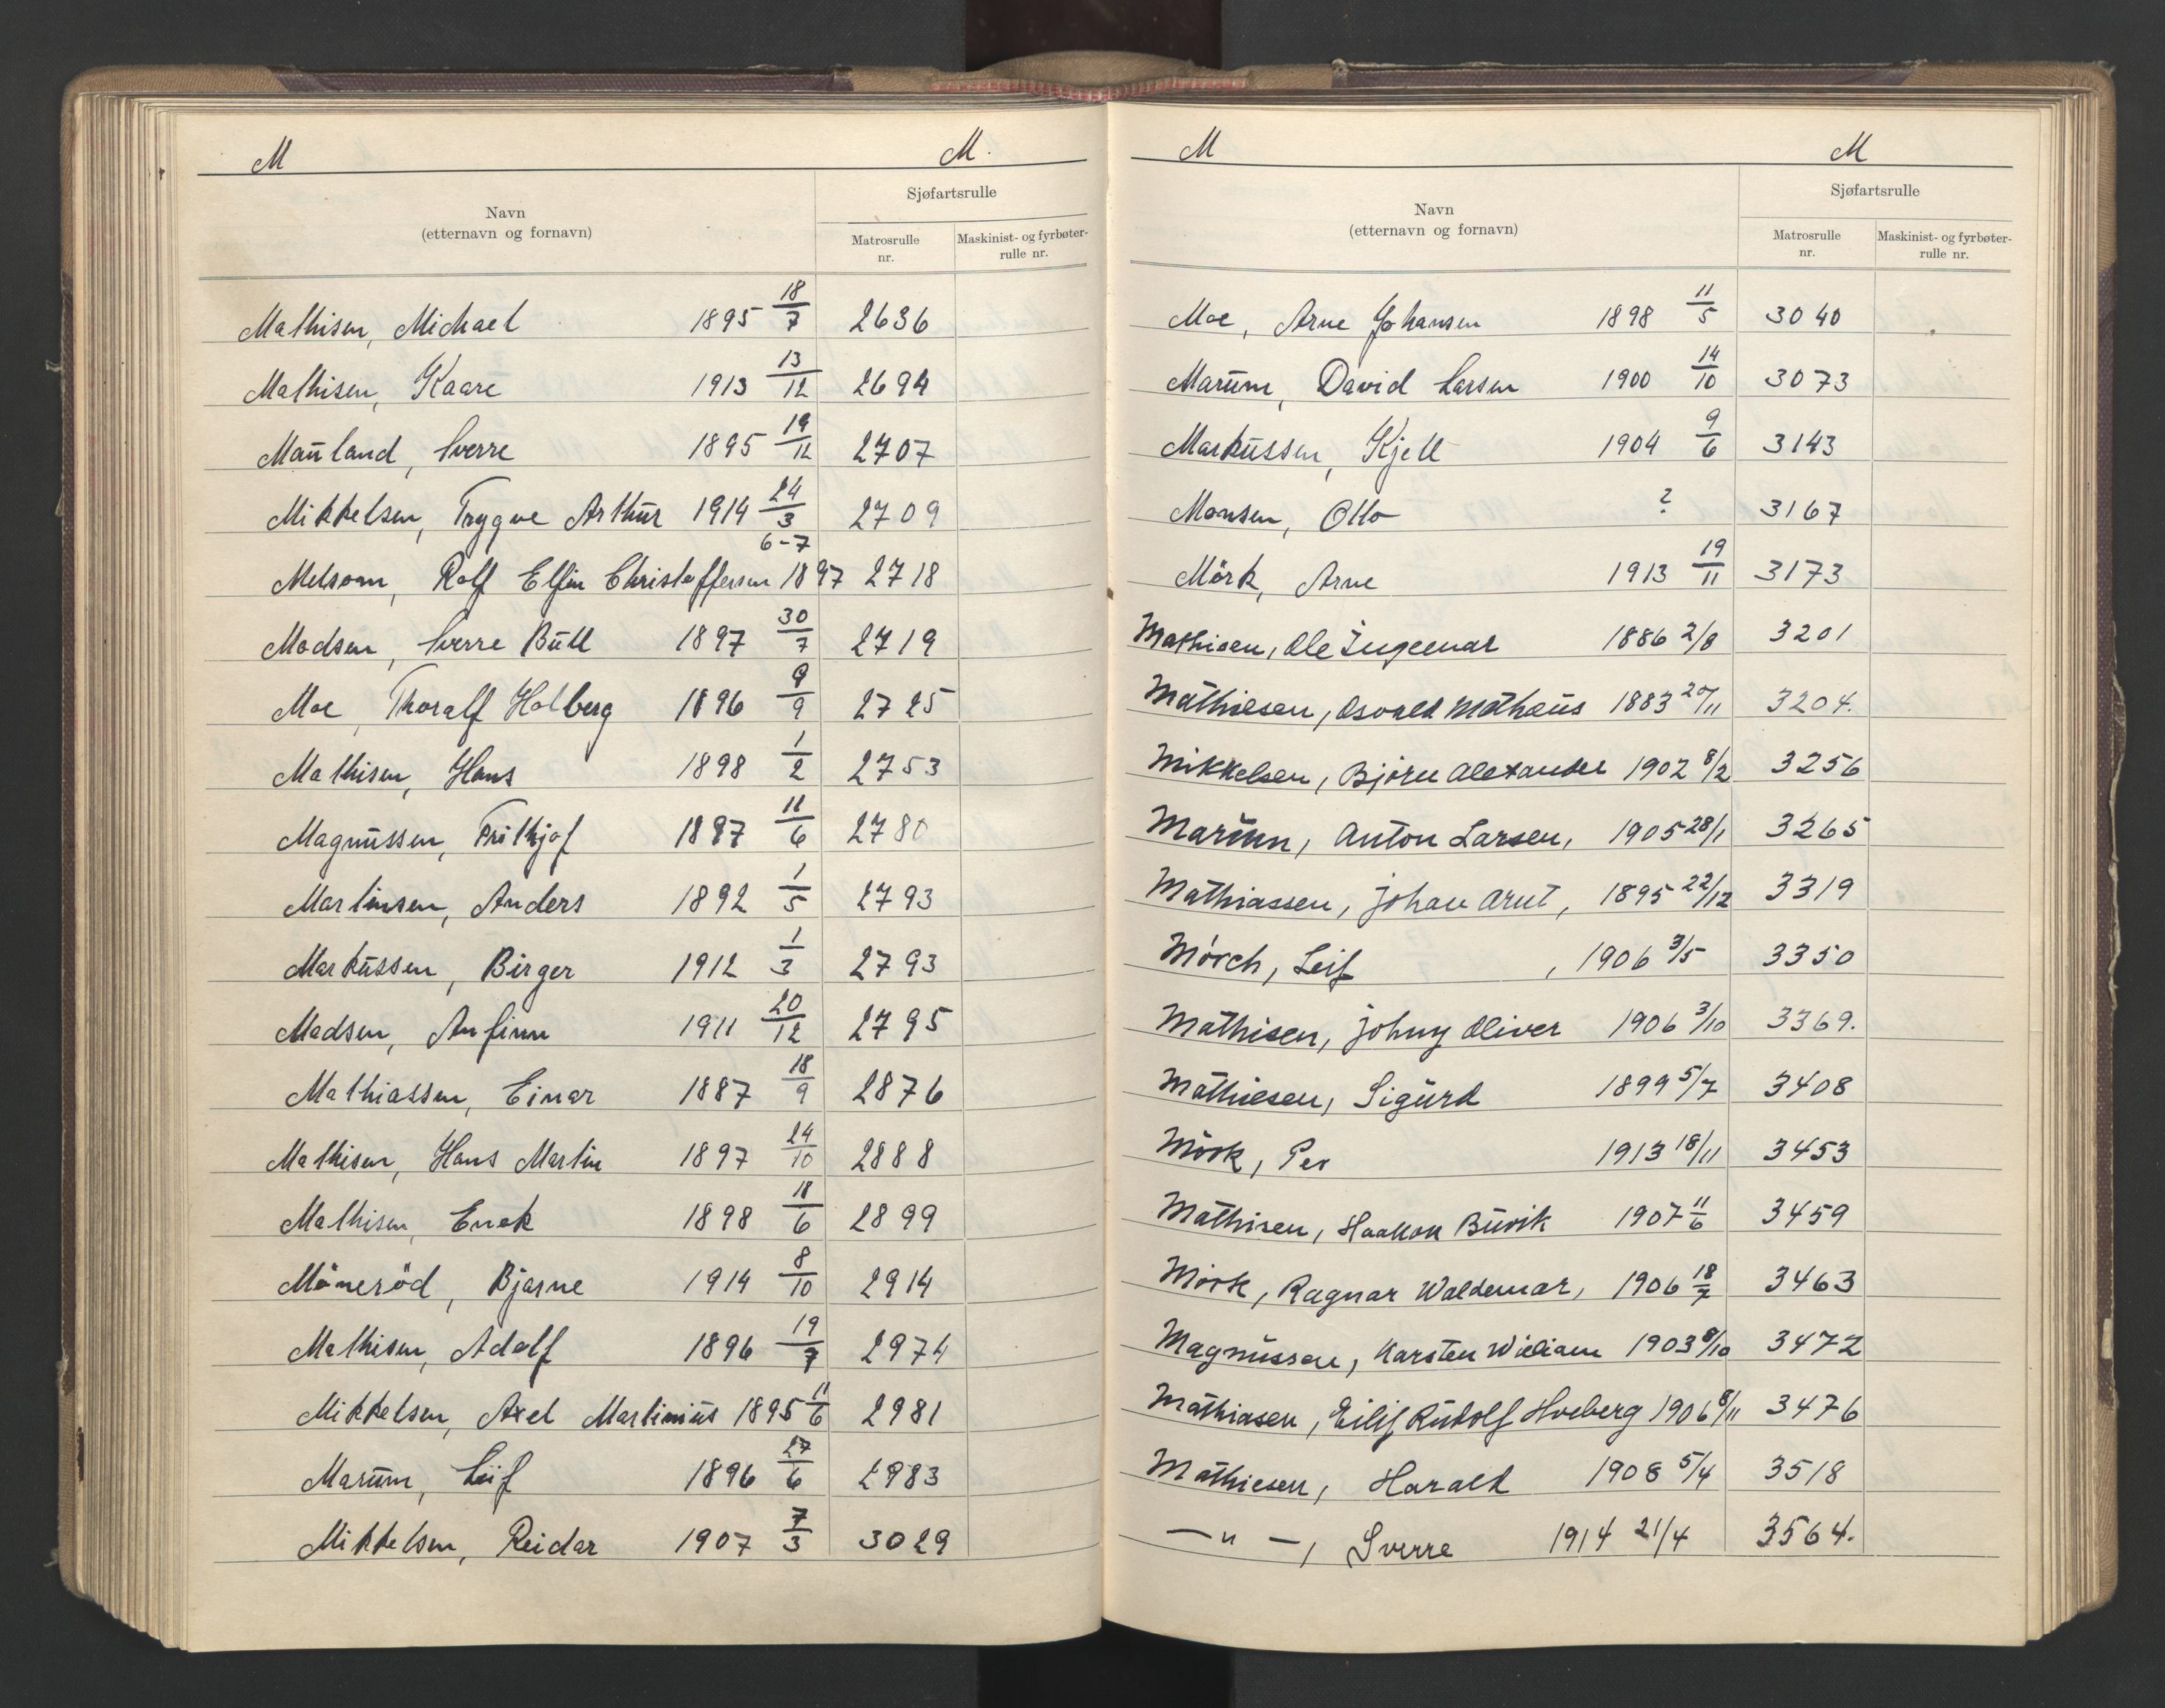 M M.
Sjøfartsrulle
Navn
(etternavn og fornavn)
Matrosrulle nr.
Maskinist- og fyrbøter-rulle nr.
Mathisen, Michael 1895 18/7 2636
Mathisen, Kaare 1913 13/12 2694
Mauland, Sverre 1895 19/12 2707
Mikkelsen, Trygve Arthur 1914 24/3 2709
Melsom, Rolf Elfin Christoffersen 1897 6-7 2718
Madsen, Sverre Bull 1897 30/7 2719
Moe, Thoralf Holberg 1896 9/9 2725
Mathisen, Hans 1898 1/2 2753
Magnussen, Frithjof 1897 11/6 2780
Martinsen, Anders 1892 1/5 2793
Markussen, Birger 1912 1/3 2793
Madsen, Anfinn 1911 20/12 2795
Mathiassen, Einar 1887 18/9 2876
Mathisen, Hans Martin 1897 24/10 2888
Mathisen, Enok 1898 18/6 2899
Möneröd, Bjarne 1914 8/10 2914
Mathisen, Adolf 1896 19/7 2974
Mikkelsen, Axel Martinius 1895 11/6 2981
Marum, Leif 1896 27/6 2983
Mikkelsen, Reidar 1907 7/3 3029
M M
Sjøfartsrulle
Navn
(etternavn og fornavn)
Matrosrulle nr.
Maskinist- og fyrbøter-rulle nr.
Moe, Arne Johansen 1898 11/5 3040
Marum, David Larsen 1900 14/10 3073
Markussen, Kjell 1904 9/6 3143
Monsen, Otto ? 3167
Mörk, Arne 1913 19/11 3173
Mathisen, Ole Ingemar 1886 2/8 3201
Mathiesen, Osvald Mathæus 1883 20/11 3204.
Mikkelsen, Bjørn Alexander 1902 8/2 3256
Marum, Anton Larsen, 1905 28/1 3265
Mathiassen, Johan Arnt, 1895 22/12 3319
Mörch, Leif , 1906 3/5 3350
Mathisen, Johny Oliver 1906 3/10 3369.
Mathiesen, Sigurd 1899 5/7 3408
Mörk, Per 1913 18/11 3453
Mathisen, Haakon Burik 1907 11/6 3459
Mörk, Ragnar Waldemar, 1906 18/7 3463
Magnussen, Karsten William 1903 8/10 3472
Mathiasen, Eilif Rudolf Hveberg 1906 8/11 3476
Mathiesen, Harald 1908 5/4 3518
— " —, Sverre 1914 21/4 3564.